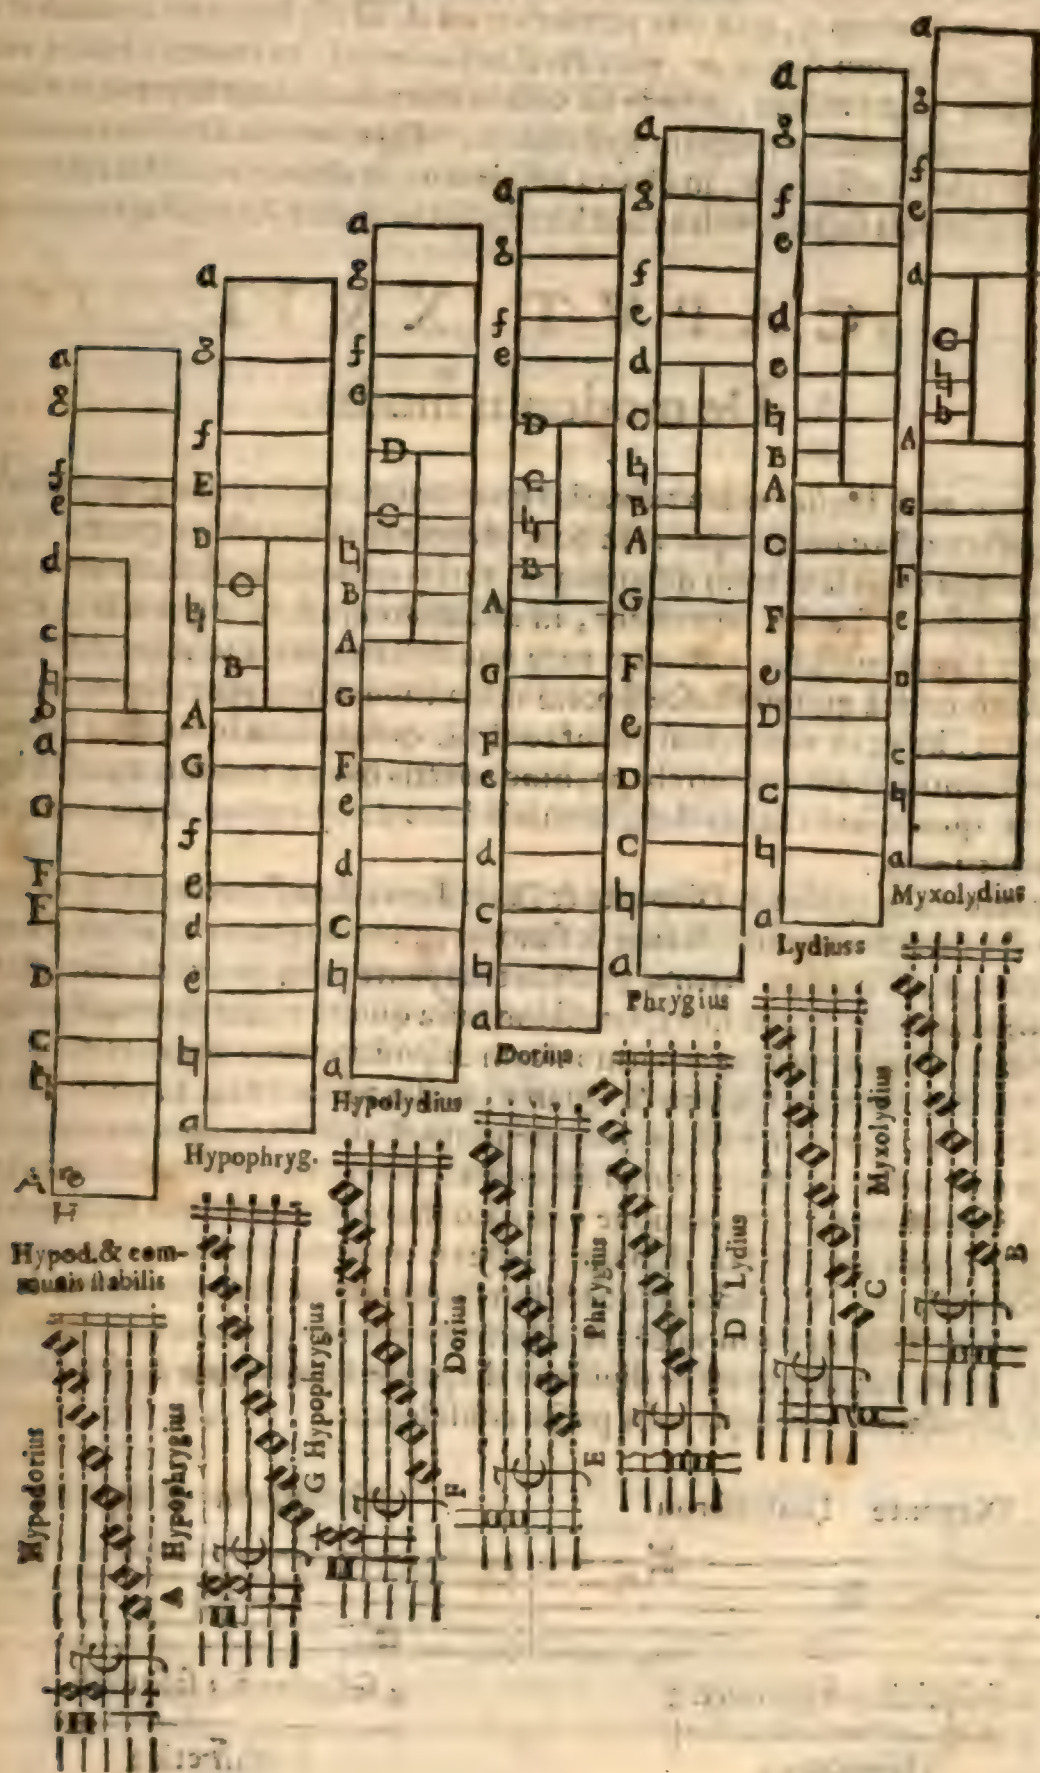 a
g
f
e
d
c
♮
b
a
G
F
E
D
C
♮
A re
Hypod. & com-
munis stabilis
a
g
f
E
D
C
♮
B
A
G
f
e
d
e
♮
a
Hypophryg.
a
g
f
e
D
C
♮
B
A
G
F
e
d
C
♮
a
Hypolydius
a
g
f
e
D
C
♮
B
A
G
F
e
d
c
♮
a
Dorius
a
g
f
e
d
C
♮
B
A
G
F
e
D
C
♮
a
Phrygius
a
g
f
e
d
e
♮
B
A
C
F
e
D
C
♮
a
Lydiuss
a
g
f
e
d
C
♮
b
A
G
F
e
D
c
♮
a
Myxolydius
Hypodorius
A Hypophrygius
G Hypophrygius
F Dorius
E Phrygius
D Lydius
C Myxolydius
B